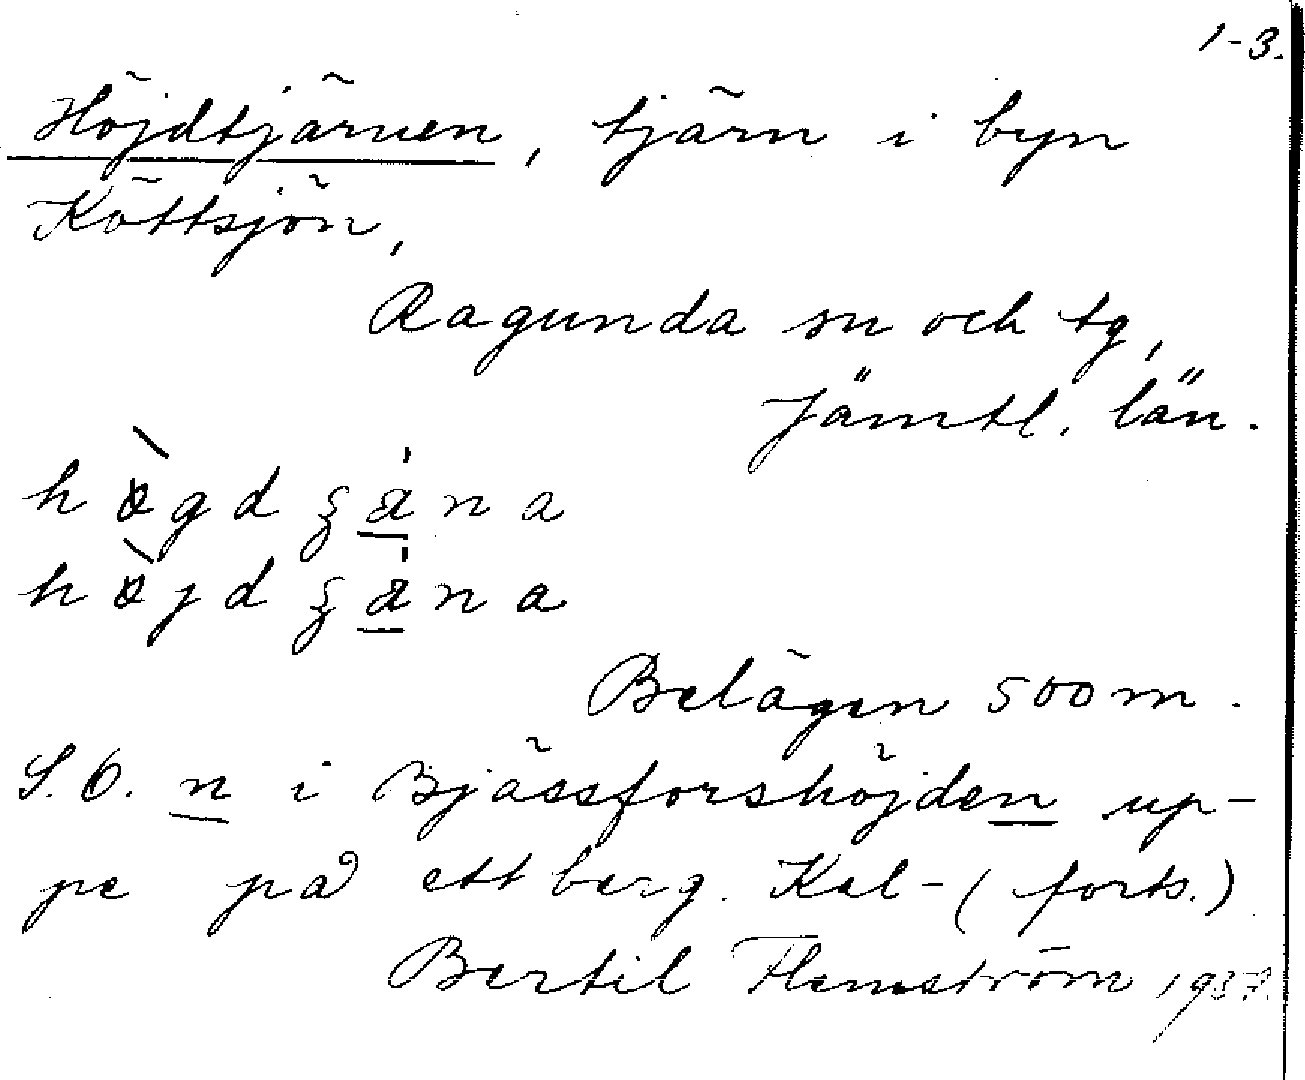 1-3.
Höjdtjärnen, tjärn i byn
Köttsjön,
Ragunda sn och tg,
Jämtl. län.
h ö̀ g d ʒ ä́ n a
h ö̀ j d ʒ ä́ n a
Belägen 500 m.
S.O. n i Bjässforshöjden up-
pe på ett berg. Kal- (forts.)
Bertil Flemström 1937.